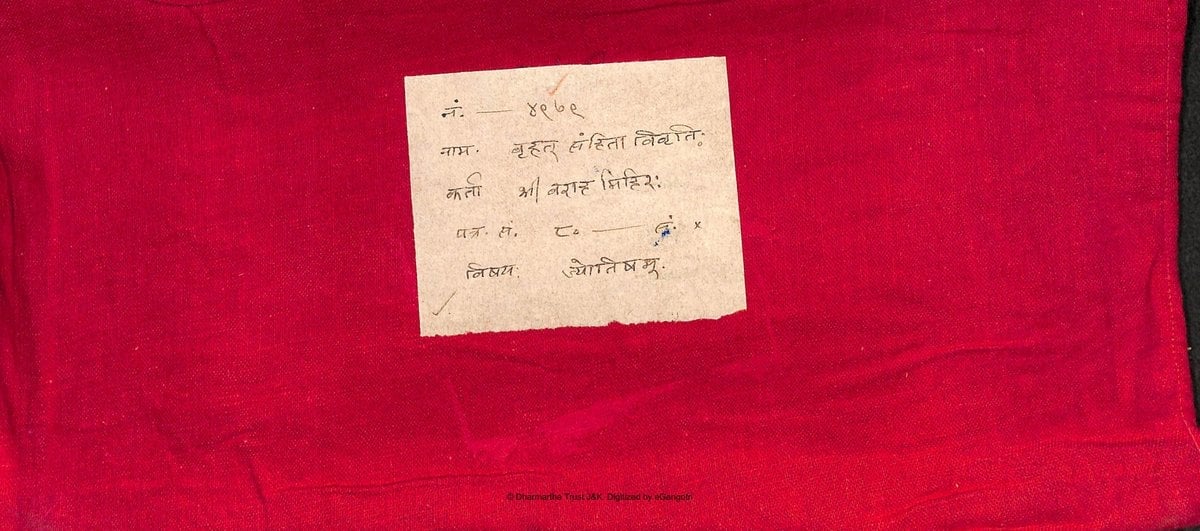 नं. — ४९७९
नाम. बृहत् संहिता विवृति:
कर्ता श्री वराह मिहिर:
पत्र. सं. ८० —
विषय. ज्योतिषम्.
© Dharmartha Trust J&K. Digitized by eGangotri